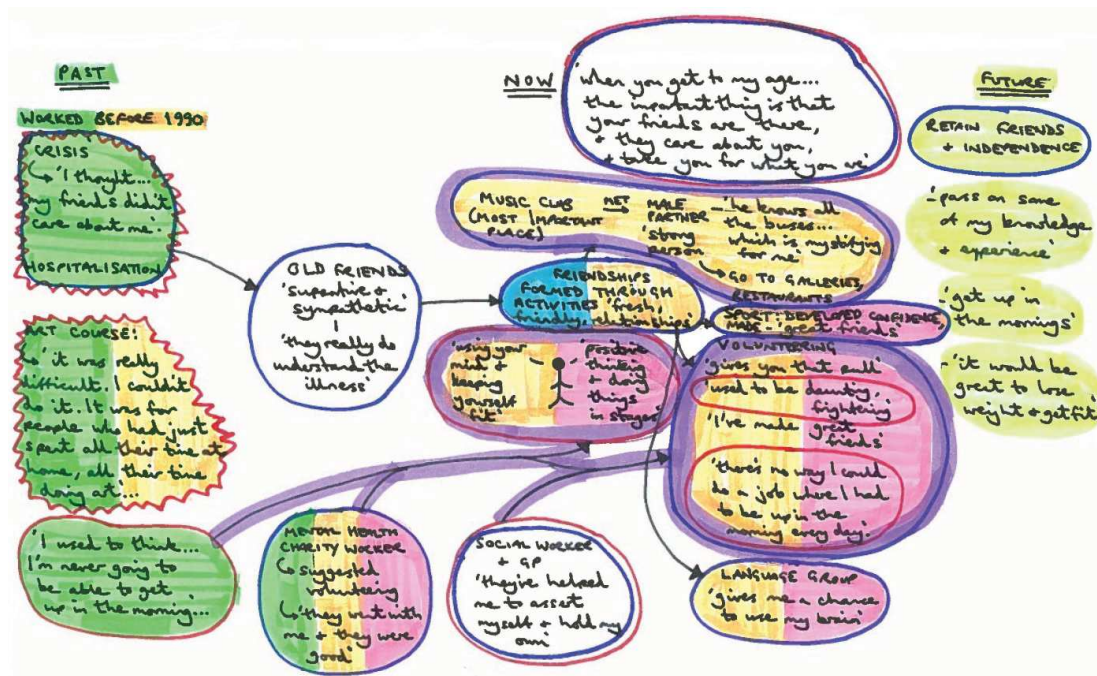 PAST
WORKED BEFORE 1990
CRISIS
↳ 'I thought...
my friends didn't
care about me'.
HOSPITALISATION
ART COURSE:
↳ 'it was really
difficult. I couldn't
do it. It was for
people who had just
spent all their time at
home, all their time
doing art...
'I used to think...
I'm never going to
be able to get
up in the morning...
OLD FRIENDS
'supportive +
sympathetic'
'they really do
understand the
illness'
MENTAL HEALTH
CHARITY WORKER
↳ suggested
volunteering
↳ 'they went with
me + they were
good'
SOCIAL WORKER
+ GP
'they've helped
me to assert
myself + hold my
own'
NOW
'when you get to my age...
the important thing is that
your friends are there,
+ they care about you,
+ take you for what you are'
MUSIC CLUB
(MOST IMPORTANT
PLACE)
MET
→
MALE
PARTNER
'strong
person'
– 'he knows all
the buses...
which is mystifying
for me'
↳ GO TO GALLERIES,
RESTAURANTS
FRIENDSHIPS
FORMED THROUGH
ACTIVITIES 'fresh,
friendly, relationships'
SPORT: DEVELOPED CONFIDENCE,
MADE – 'great friends'
'using your
mind +
keeping
yourself
fit'
'positive
thinking
+ doing
things
in stages'
VOLUNTEERING
'gives you that pull'
'used to be daunting,
frightening'
'I've made great
friends'
'there's no way I could
do a job where I had
to be up in the
morning every day.'
LANGUAGE GROUP
'gives me a chance
to use my brain'
FUTURE
RETAIN FRIENDS
+ INDEPENDENCE
-'pass on some
of my knowledge
+ experience'
- 'get up in
the mornings'
- 'it would be
great to lose
weight + get fit'